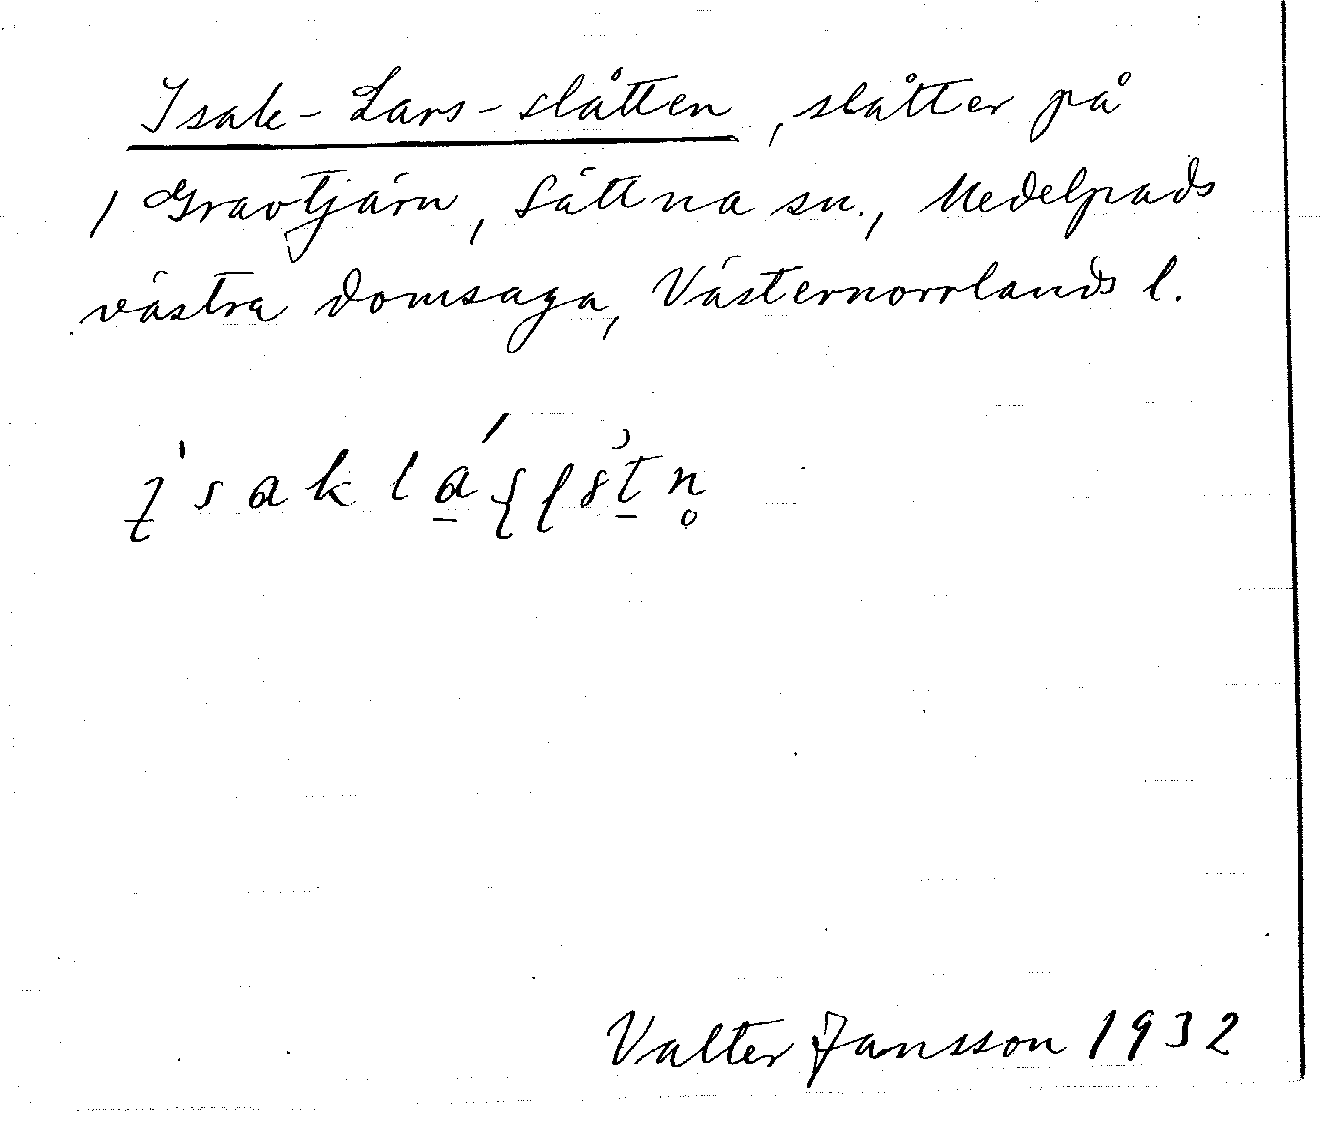 Isak-Lars-slåtten, slåtter på
/ Gravtjärn, Sättna sn., Medelpads
västra domsaga, Västernorrlands l.
Valter Jansson 1932